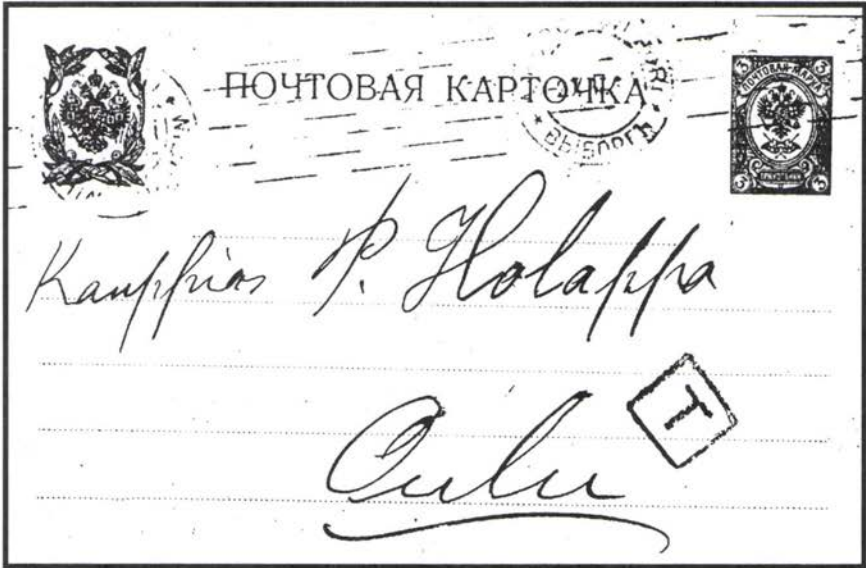 ПОЧТОВАЯ КАРТОЧКА
ВЫБОРГЪ
3 ПОЧТОВАЯ МАРКА 3
3 3
Kauppias P. Holappa
T
Oulu